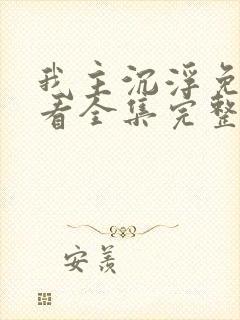 我主沉浮免
看全集完整
安羡